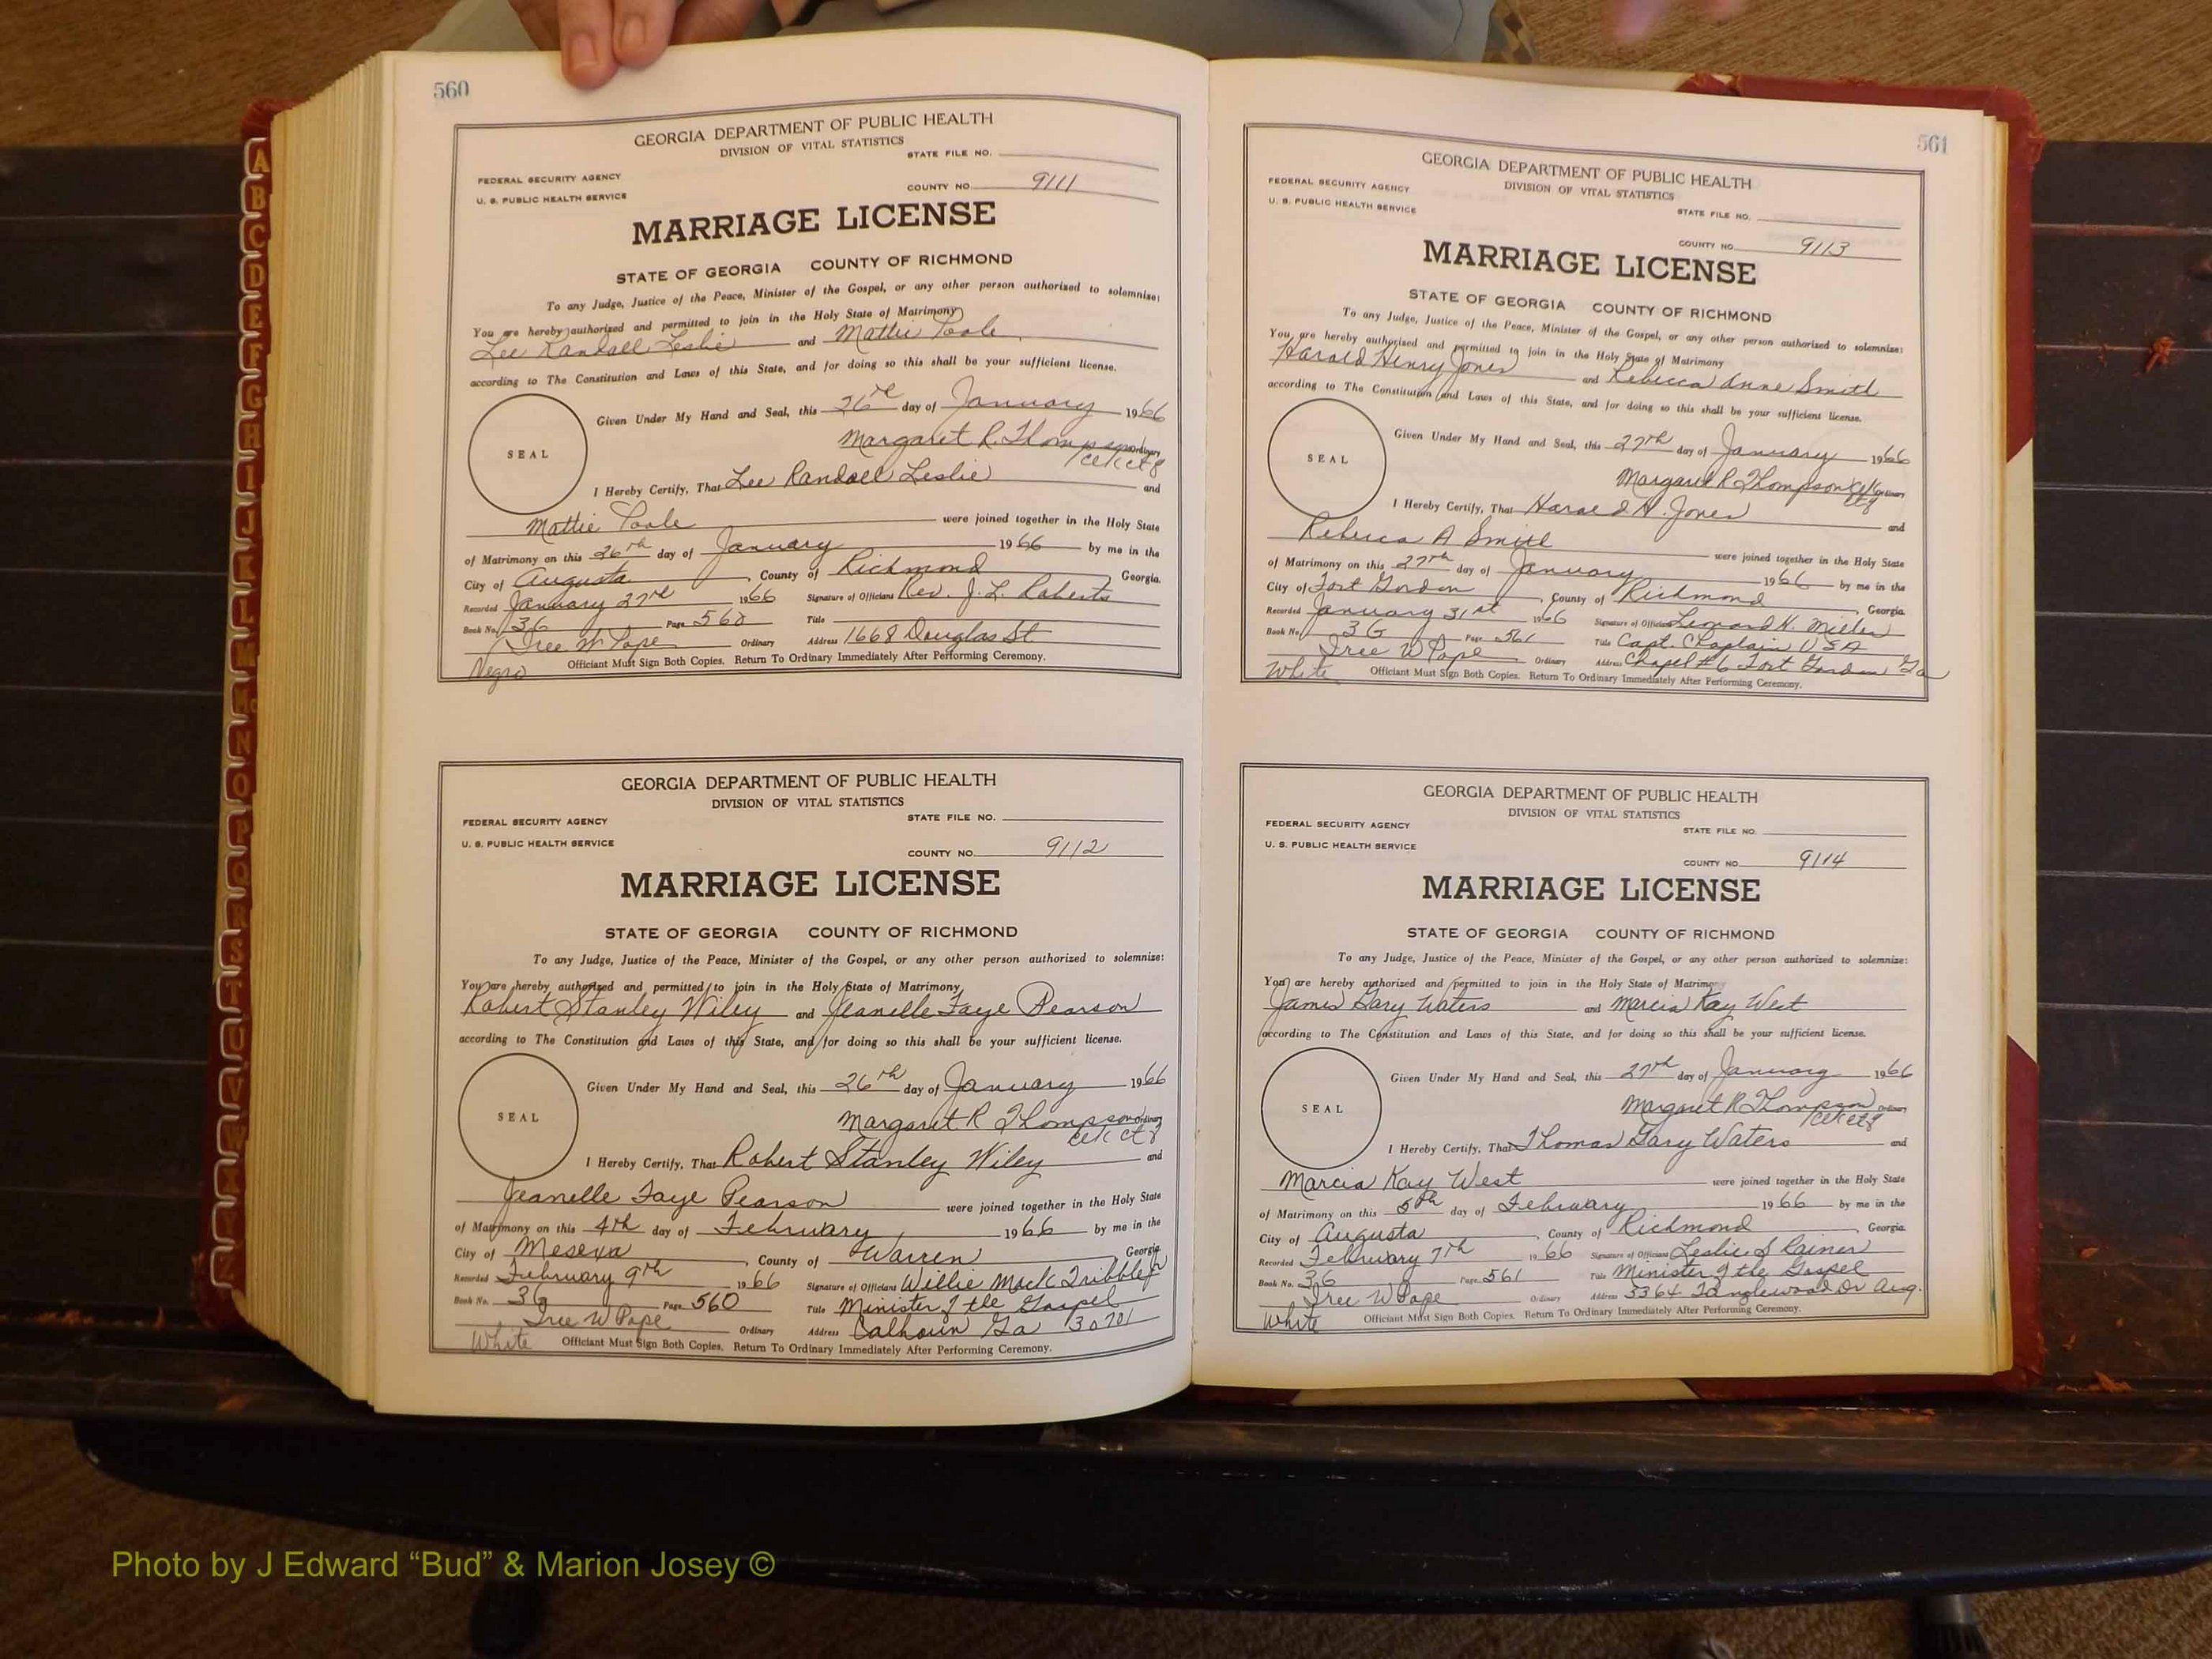 560
GEORGIA DEPARTMENT OF PUBLIC HEALTH
DIVISION OF VITAL STATISTICS
STATE FILE NO.
FEDERAL SECURITY AGENCY
U. S. PUBLIC HEALTH SERVICE
COUNTY NO. 9111
MARRIAGE LICENSE
STATE OF GEORGIA COUNTY OF RICHMOND
To any Judge, Justice of the Peace, Minister of the Gospel, or any other person authorized to solemnize:
You are hereby authorized and permitted to join in the Holy State of Matrimony
Lee Randall Leslie and Mattie Poole
according to The Constitution and Laws of this State, and for doing so this shall be your sufficient license.
SEAL
Given Under My Hand and Seal, this 26th day of January 1966
Margaret R. Thompson Ordinary
I Hereby Certify, That Lee Randall Leslie and
Mattie Poole were joined together in the Holy State
of Matrimony on this 26th day of January 1966 by me in the
City of Augusta, County of Richmond Georgia.
Recorded January 27th 1966 Signature of Officiant Rev. J. L. Roberts
Book No. 3G Page 560 Title
Tree W Pope Ordinary Address 1668 Douglas St
Negro Officiant Must Sign Both Copies. Return To Ordinary Immediately After Performing Ceremony.
GEORGIA DEPARTMENT OF PUBLIC HEALTH
DIVISION OF VITAL STATISTICS
STATE FILE NO.
FEDERAL SECURITY AGENCY
U. S. PUBLIC HEALTH SERVICE
COUNTY NO. 9112
MARRIAGE LICENSE
STATE OF GEORGIA COUNTY OF RICHMOND
To any Judge, Justice of the Peace, Minister of the Gospel, or any other person authorized to solemnize:
You are hereby authorized and permitted to join in the Holy State of Matrimony
Robert Stanley Wiley and Jeanelle Faye Pearson
according to The Constitution and Laws of this State, and for doing so this shall be your sufficient license.
SEAL
Given Under My Hand and Seal, this 26th day of January 1966
Margaret R Thompson Ordinary
I Hereby Certify, That Robert Stanley Wiley and
Jeanelle Faye Pearson were joined together in the Holy State
of Matrimony on this 4th day of February 1966 by me in the
City of Mesena, County of Warren Georgia
Recorded February 9th 1966 Signature of Officiant Willie Mack Tribble Jr
Book No. 3G Page 560 Title Minister of the Gospel
Tree W Pope Ordinary Address Calhoun Ga 30701
White Officiant Must Sign Both Copies. Return To Ordinary Immediately After Performing Ceremony.
561
GEORGIA DEPARTMENT OF PUBLIC HEALTH
DIVISION OF VITAL STATISTICS
FEDERAL SECURITY AGENCY
U. S. PUBLIC HEALTH SERVICE
STATE FILE NO.
COUNTY NO. 9113
MARRIAGE LICENSE
STATE OF GEORGIA COUNTY OF RICHMOND
To any Judge, Justice of the Peace, Minister of the Gospel, or any other person authorized to solemnize:
You are hereby authorized and permitted to join in the Holy State of Matrimony
Harold Henry Jones and Rebecca Anne Smith
according to The Constitution and Laws of this State, and for doing so this shall be your sufficient license.
SEAL
Given Under My Hand and Seal, this 27th day of January 1966
Margaret R Thompson Ordinary
I Hereby Certify, That Harold H. Jones and
Rebecca A Smith were joined together in the Holy State
of Matrimony on this 27th day of January 1966 by me in the
City of Fort Gordon, County of Richmond, Georgia.
Recorded January 31st 1966 Signature of Officiant Leonard H. Miller
Book No. 3G Page 561 Title Capt. Chaplain USA
Tree W Pope Ordinary Address Chapel #6 Fort Gordon Ga
White Officiant Must Sign Both Copies. Return To Ordinary Immediately After Performing Ceremony.
GEORGIA DEPARTMENT OF PUBLIC HEALTH
DIVISION OF VITAL STATISTICS
FEDERAL SECURITY AGENCY
STATE FILE NO.
U. S. PUBLIC HEALTH SERVICE
COUNTY NO. 9114
MARRIAGE LICENSE
STATE OF GEORGIA COUNTY OF RICHMOND
To any Judge, Justice of the Peace, Minister of the Gospel, or any other person authorized to solemnize:
You are hereby authorized and permitted to join in the Holy State of Matrimony
James Gary Waters and Marcia Kay West
according to The Constitution and Laws of this State, and for doing so this shall be your sufficient license.
SEAL
Given Under My Hand and Seal, this 27th day of January 1966
Margaret R Thompson Ordinary
I Hereby Certify, That Thomas Gary Waters and
Marcia Kay West were joined together in the Holy State
of Matrimony on this 5th day of February 1966 by me in the
City of Augusta, County of Richmond, Georgia.
Recorded February 7th 1966 Signature of Officiant Leslie S Rainer
Book No. 3G Page 561 Title Minister of the Gospel
Tree W Pope Ordinary Address 3364 Tanglewood Dr Aug.
White Officiant Must Sign Both Copies. Return To Ordinary Immediately After Performing Ceremony.
A
B
C
D
E
F
G
H
I
J
K
L
M
Mc
N
O
P
Q
R
S
T
U
V
W
X
Y
Z
Photo by J Edward “Bud” & Marion Josey ©